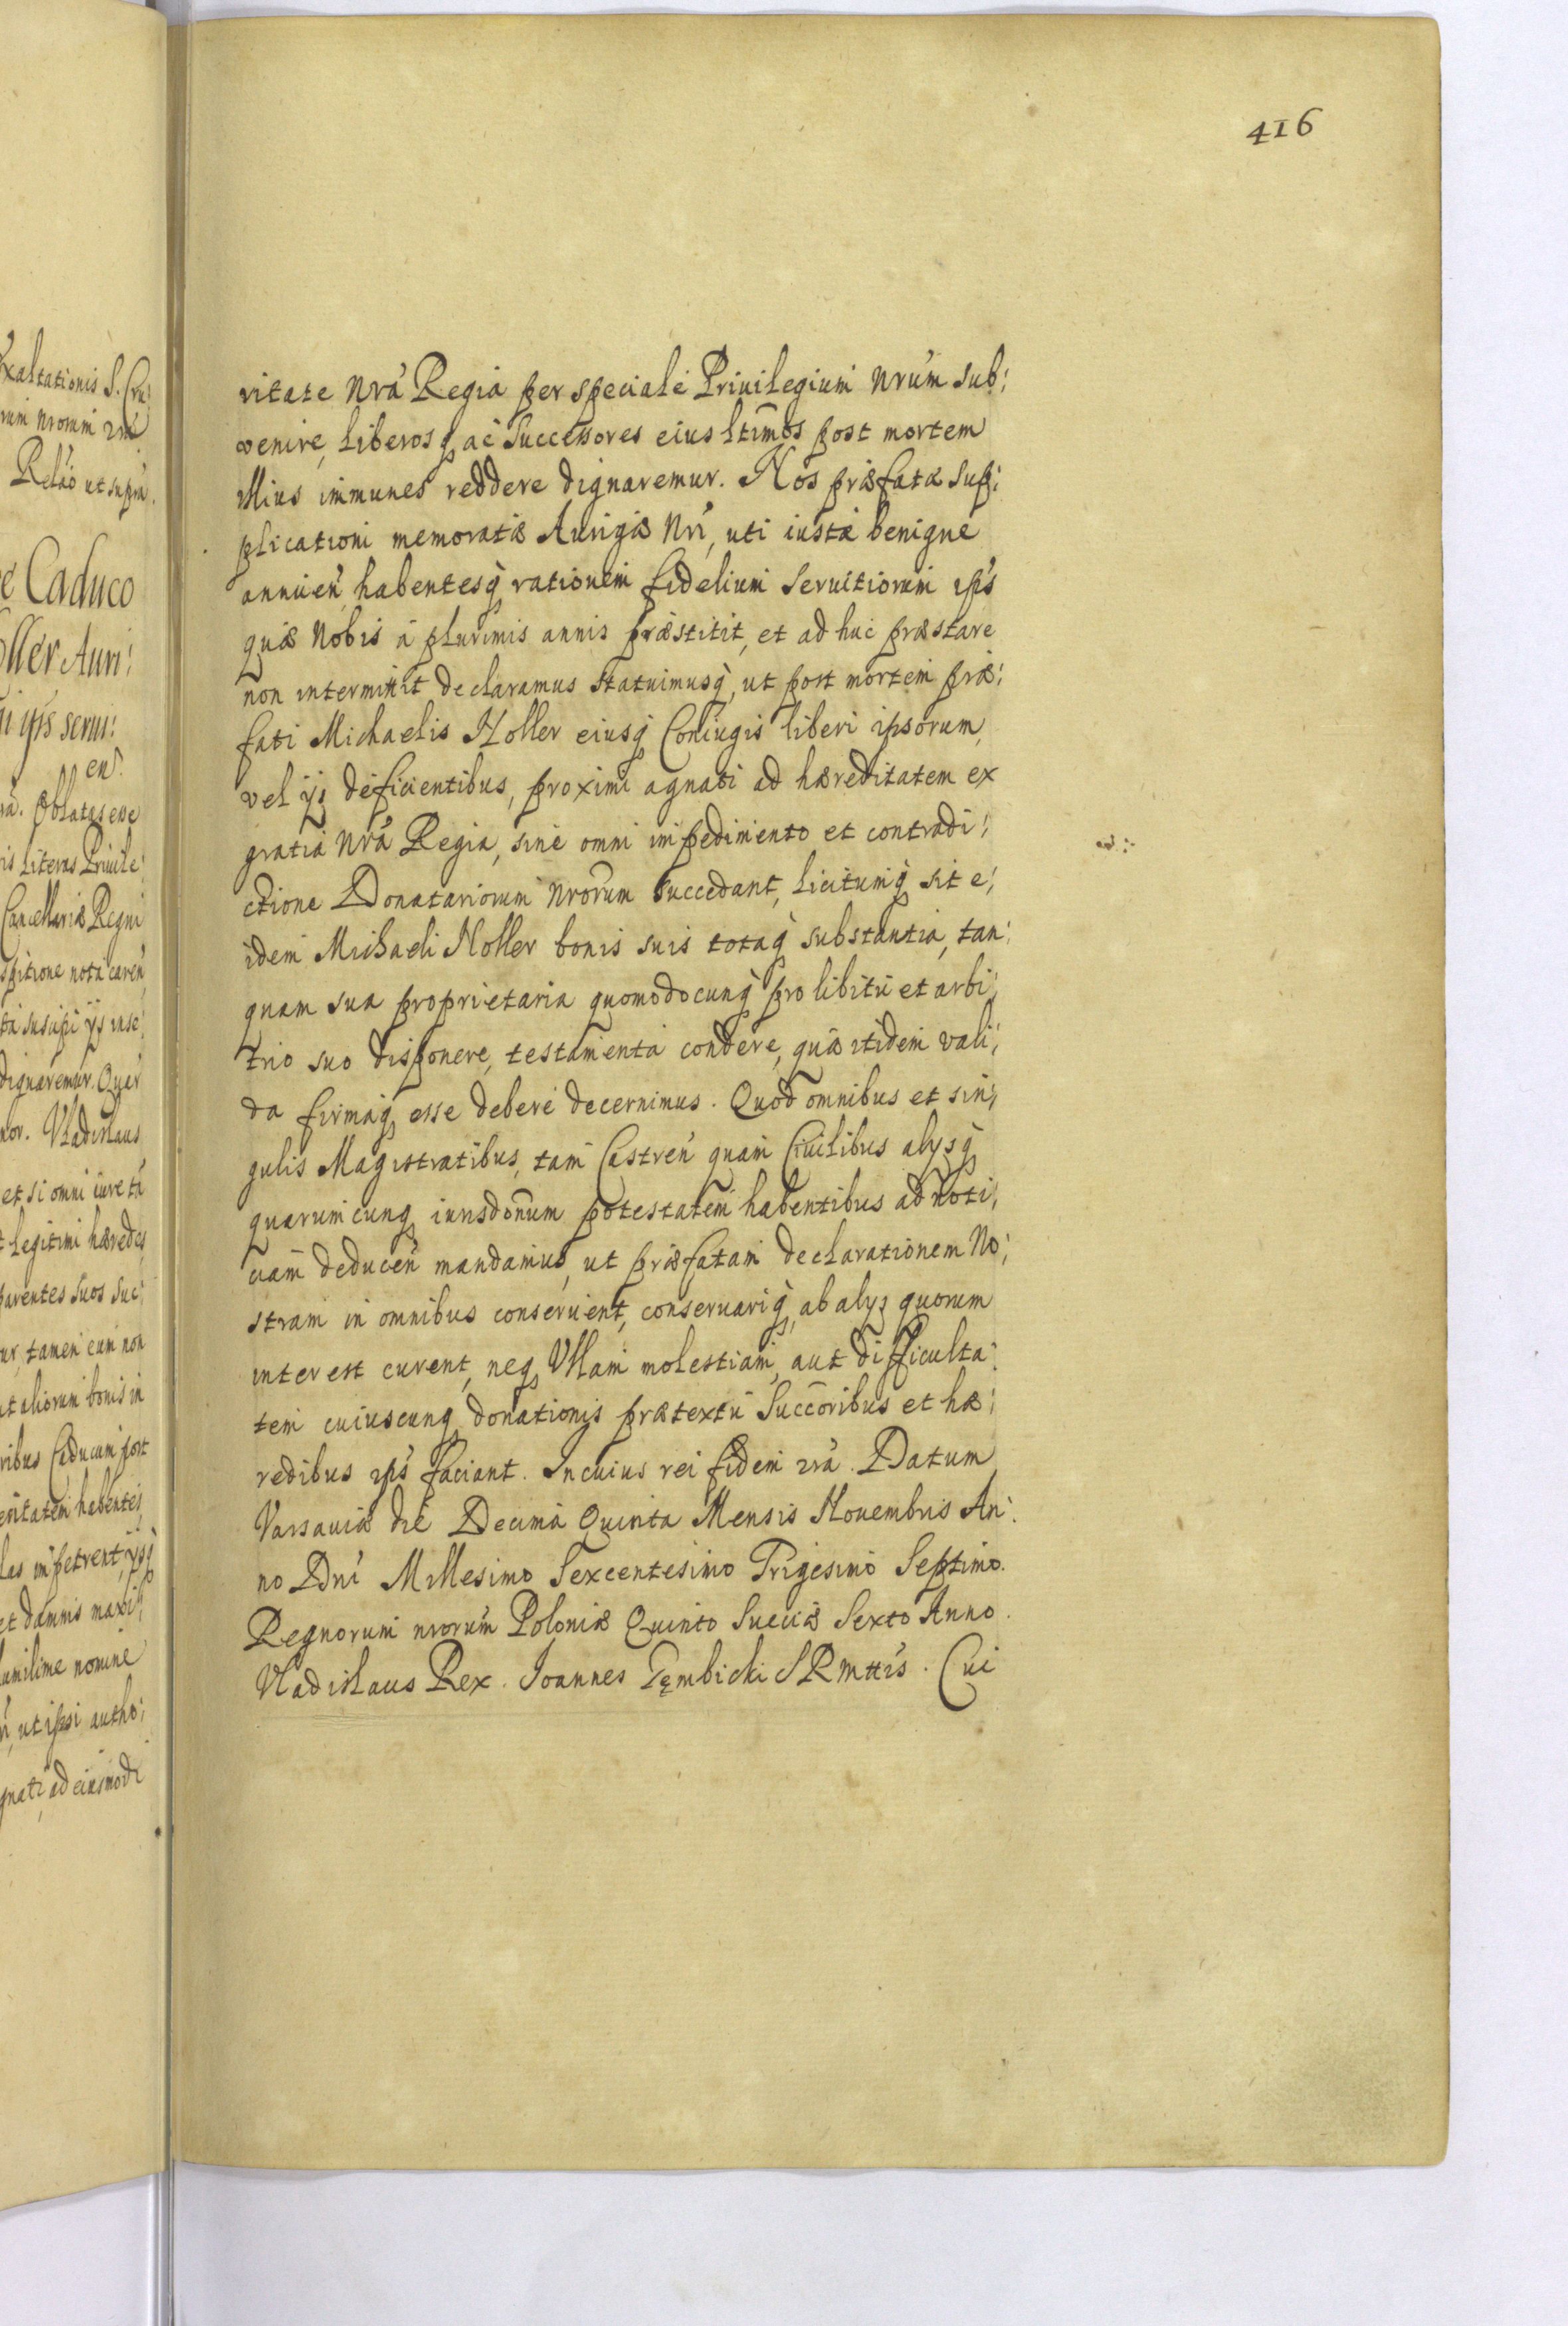 416
ritate nrá Regia per speciale Priuilegium nrúm sub:
venire, liberosq ac Successores eius ltimos post mortem
illius immunes reddere dignaremur. Nos præfatæ sup:
plicationi memoratæ Aurigæ nrí, uti iustæ benigne
annuen, habentesq rationem fidelium Seruitiorum ips
quæ Nobis á plurimis annis præstitit, et ad huc præstare
non intermittit declaramus statuimusq, ut post mortem præ:
fati Michaelis Holler eiusq Coniugis liberi ipsorum,
vel ijs deficientibus, proximi agnati ad hæreditatem ex
gratia nrá Regia, sine omni impedimento et contradi:
ctione Donatariorum nrorum succedant, licitumq sit e:
idem Michaeli Holler bonis suis totaq substantia, tan:
quam sua proprietaria quomodocunq pro libitu et arbi:
trio suo disponere, testamenta condere, quæ itidem vali:
da firmaq esse debere decernimus. Quod omnibus et sin:
gulis Magistratibus, tam Castren quam Ciuilibus alysq
quarumcunq iurisdonum potestatem habentibus ad noti:
ciam deducen mandamus, ut præfatam declarationem No:
stram in omnibus conseruent, conseruariq, ab alys quorum
interest curent, neq Vllam molestiam, aut difficulta:
tem cuiuscunq donationis prætextu Succoribus et hæ:
redibus ips faciant. In cuius rei fidem zrá. Datum
Varsauiæ die Decima Quinta Mensis Nouembris An:
no Dni Millesimo Sexcentesimo Trigesimo Septimo.
Regnorum nrorum Poloniæ Quinto Sueciæ Sexto Anno.
Vladislaus Rex. Joannes Gębicki SRMttis. Cui
xaltationis S. Cru:
rum nrorum zrá
Reláo ut supra.
Caduco
ller Auri:
ips serui:
en.
Oblatas esse
literas Priuile:
Cancellariæ Regni
spitione nota caren
suscipi ijs inse:
dignaremur. Quar
nor. Vladislaus
et si omni iure tá
legitimi hæredes
parentes suos suc:
ur, tamen cum non
aliorum bonis in
ribus Caducum post
eritatem habentes,
las impetrent, ijsq
et damnis maxi:
humilime nomine
ut ipsi autho:
gnati, ad eiusmodi